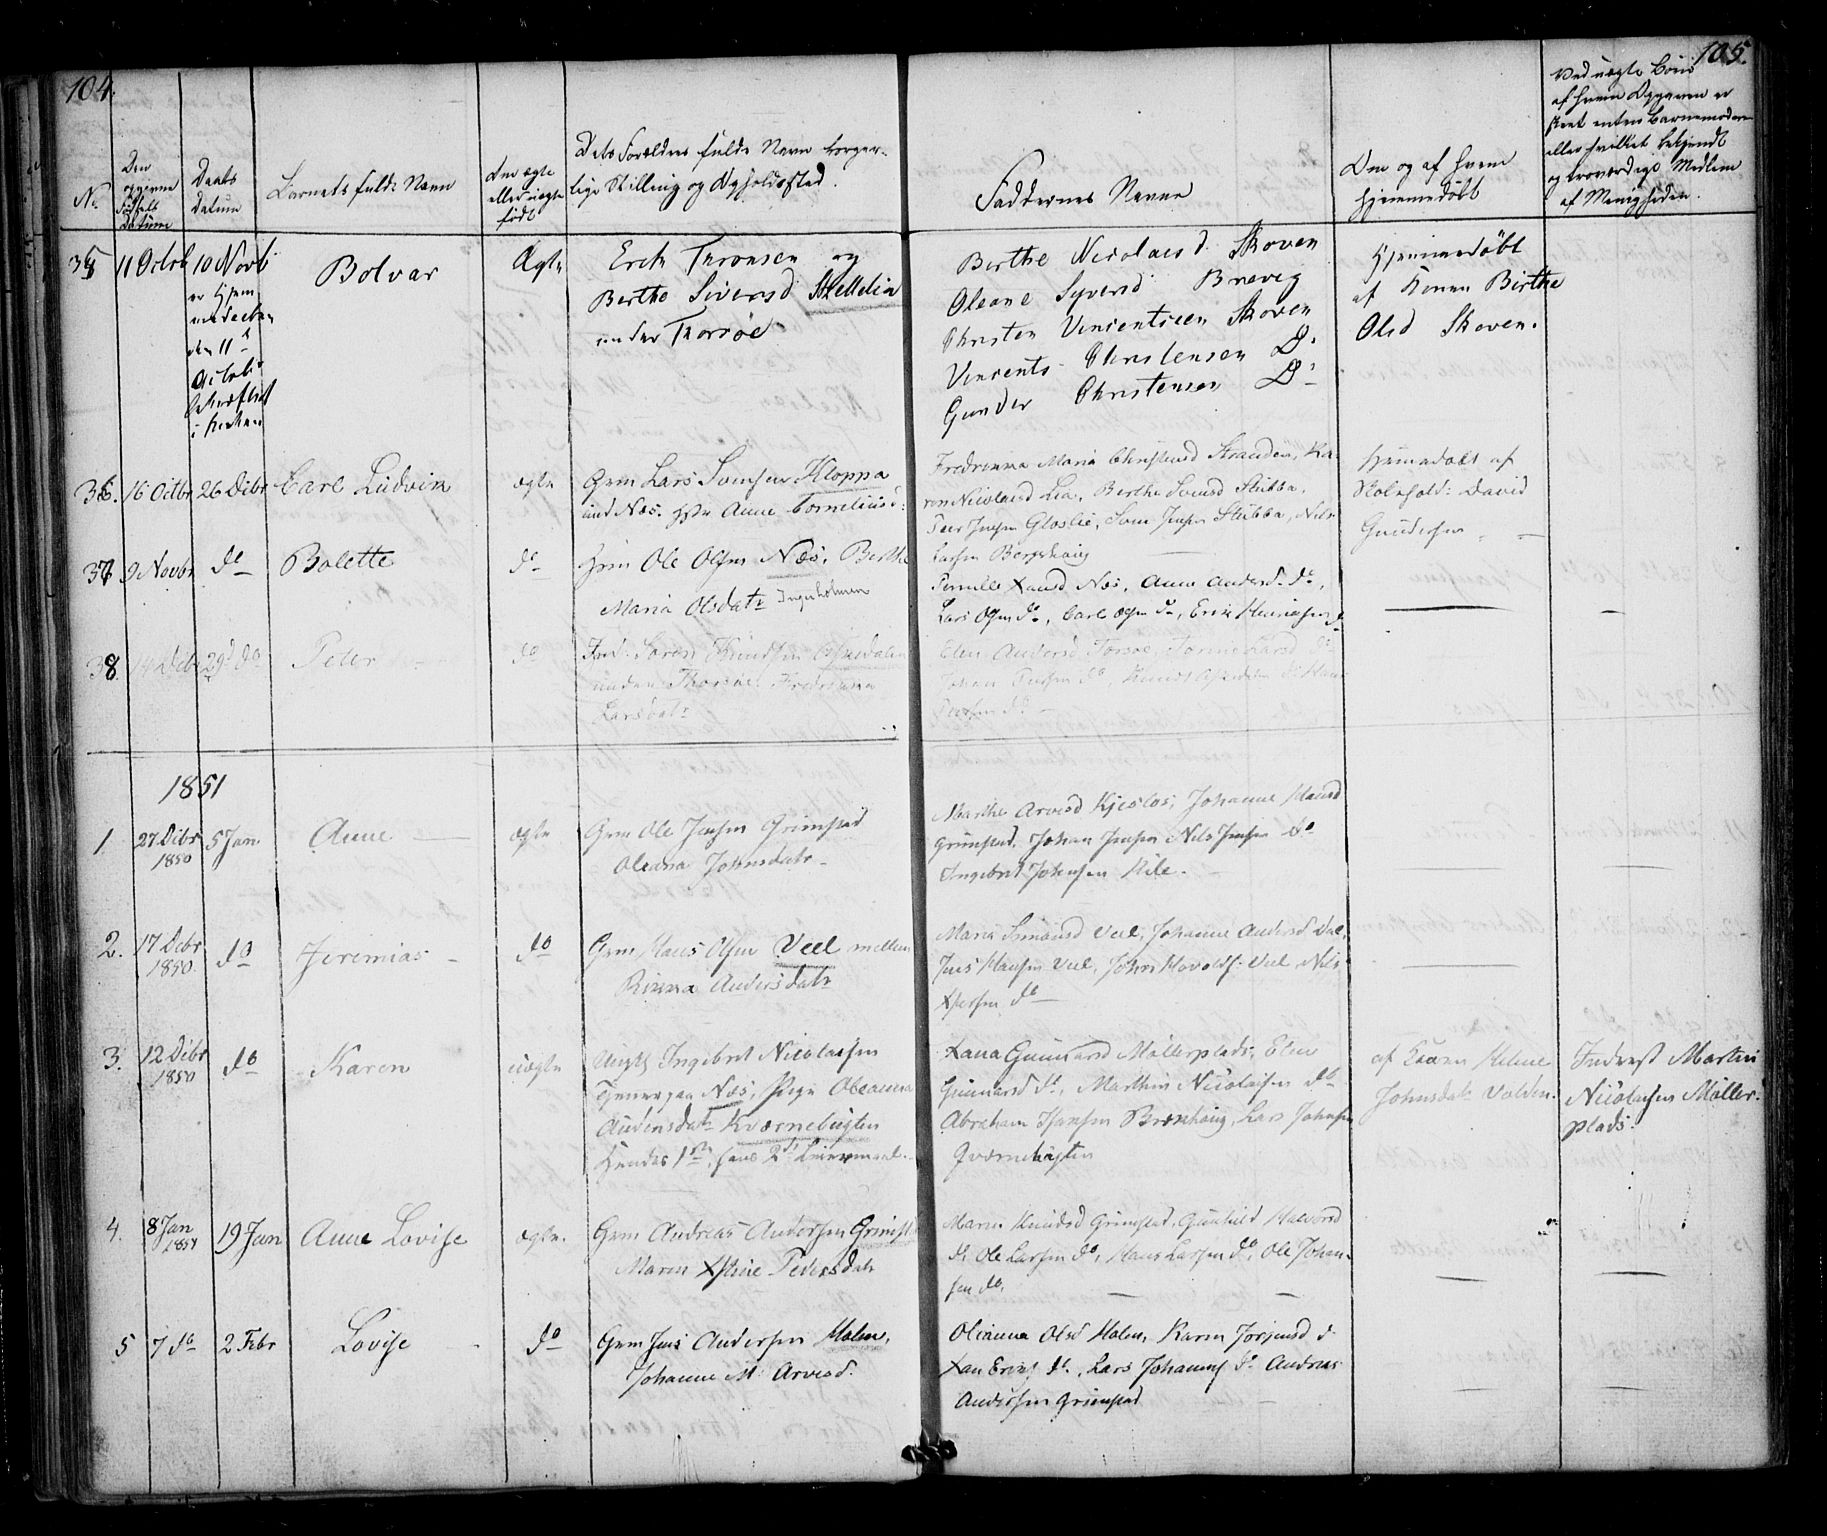 104.
105.
No
Den opgivne Fødsels Datum
Daabs datum
Barnets fulde Navn
Om ægte eller uægte født
Dets Forældres fulde Navn borger-
lige Stilling og Opholdssted.
Faddernes Navne
Om og af hvem
hjemmedøbt
Ved uægte Børn
af hvem Opgaven er
skeet enten Barnemoderen
eller hvilket bekjendt
og troværdigt Medlem
af Menigheden.
35 11 Octob 10 Novb Bolvar Ægte
er hjem
den 11te
Octob
i Kirken
Erik Thronsen og
Berthe Siversd Skellelia
under Thorsøe
Berthe Nicolaisd. Skoven
Oleane Syversd Brevig
Christen Vincentsen Skoven
Vincents Christensen Do
Gunder Christensen Do
Hjemmedøbt
af Konen Birthe
Olsd Skoven.
36. 16 Octbr 26 Debr Carl Ludvin ægte
Gm Lars Svensen Kloppa
und Næs. Hstr Anne Corneliusd:
Fredrinna Maria Christensd Stranden, Ka-
ren Nicolaisd Lia, Berthe Svensd Stubba,
Peer Jensen Gloslie, Sven Jensen Stubba, Nils
Larsen Bergshaug
Hjemmedøbt af
Skolehold: David
Gundersen
37 9 Novbr do Bolette do
Gm Ole Olsen Næs, Berthe
Maria Olsdatr Ingerholmen
Pernille Xansd Næs, Anne Andersd. do,
Lars Olsen do, Carl Olsen do, Erik Henriksen do
38 14 Debr 29d do Peter do
Ind: Søren Knudsen Askedalen
under Thorsøe. Fredrinna
Larsdatr
Elen Andersd Torsøe, Torine Larsd do
Johan do, Knud Askedalen do Hans
do
1851
1. 27 Debr 1850 5 Jan Anne ægte
Gm Ole Jensen Grimstad
Oleana Johnsdatr
Marthe Arvesd Kjeslos, Johanne Hansd
Grimstad, Johan Jensen Nils Jensen do
Ingebret Johnsen Kile.
2. 17 Debr 1850 do Jeremias do
Gm Hans Olsen Veel mellem
Rinna Andersdatr
Maria Simonsd Veel, Johanne Andersd Veel,
Jens Hansen Veel, John Hovelds: Veel Nils
Xstensen do
3. 12 Debr 1850 do Karen uægte
Ungk Ingebret Nicolaisen
Tjener paa Næs, Pige Oleanna
Andersdatr Kværnebugten
Hendes 1ste, hans 2d Leiermaal.
Xana Gunnarsd Møllerplads, Elen
Gunnarsd do, Marthin Nicolaisen do
Abraham Hansen Brænhaug, Lars Johnsen
Qværnebugten
af Karen Helene
Johnsdatr Valden.
Inderst Martin
Nicolaisen Møller-
plads.
4. 8 Jan 1851 19 Jan Anne Lovise ægte.
Gm Andreas Andersen Grimst
Maren Xstine Pedersdatr
Maren Knudsd Grimstad, Gunhild Halvorsd
do Ole Larsen do, Hans Larsen do, Ole Johan-
sen do.
5 7 do 2 Febr Lovise do
Gm Jens Andersen Holm,
Johanne M: Arvesd.
Olianna Olsd Holm, Karen Jørgensd do
Xan Erics do, Lars Johanns do Andreas
Andersen Grimstad